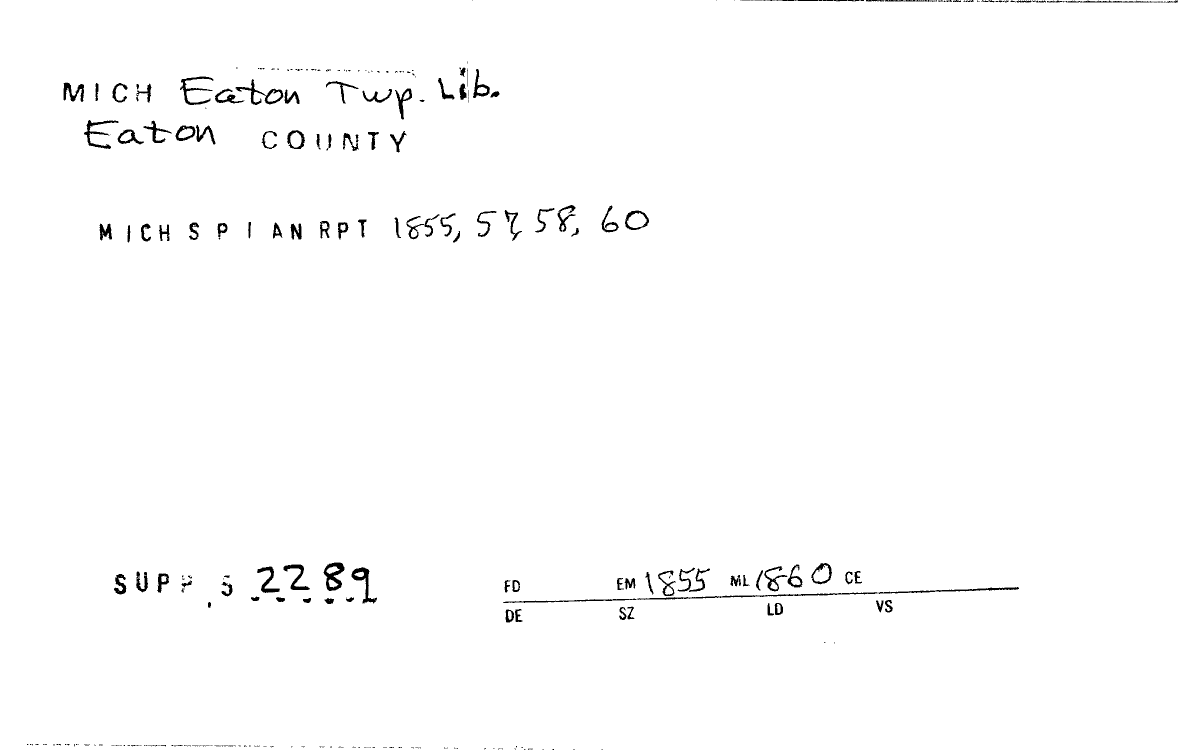 MICH Eaton Twp. Lib.
Eaton COUNTY
MICH S P I AN RPT 1855, 57, 58, 60
SUPP S 2289
FD EM 1855 ML 1860 CE
DE SZ LD VS